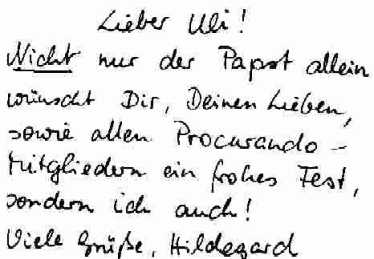 Lieber Uli!
Nicht nur der Papst allein
wünscht Dir, Deinen Lieben,
sowie allen Procurando-
Mitgliedern ein frohes Fest,
sondern ich auch!
Viele Grüße, Hildegard